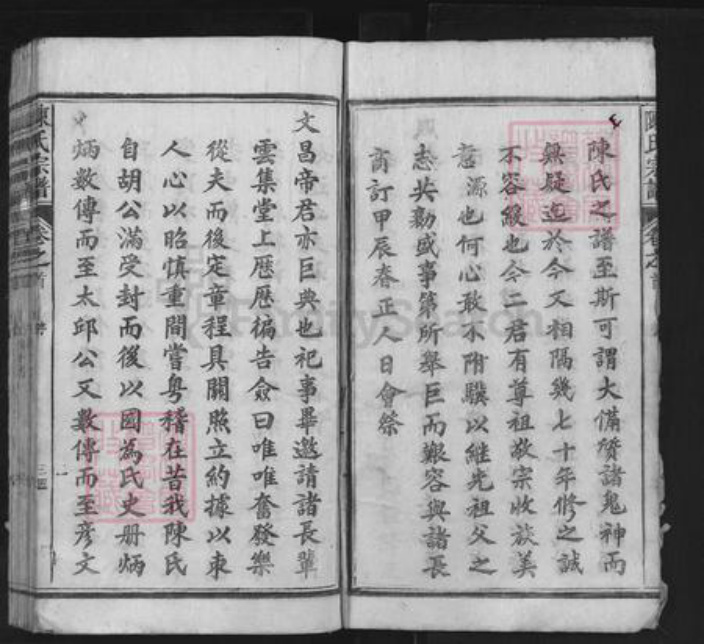 陳氏之譜至斯可謂大備質諸鬼神而
無疑迄於今又相隔幾七十年修之誠
不容緩也今二君有尊祖敬宗收族美
意源也何心敢不附驥以繼先祖父之
志共勷盛事第所舉巨而艱容與諸長
商訂甲辰春正人日會祭
文昌帝君亦巨典也祀事畢邀請諸長輩
雲集堂上歷歷徧告僉曰唯唯奮發樂
從夫而後定章程具關照立約據以束
人心以昭慎重間嘗粵稽在昔我陳氏
自胡公滿受封而後以國為氏史册炳
炳數傳而至太邱公又數傳而至彥文
陳氏宗譜 卷之首
FamilySearch